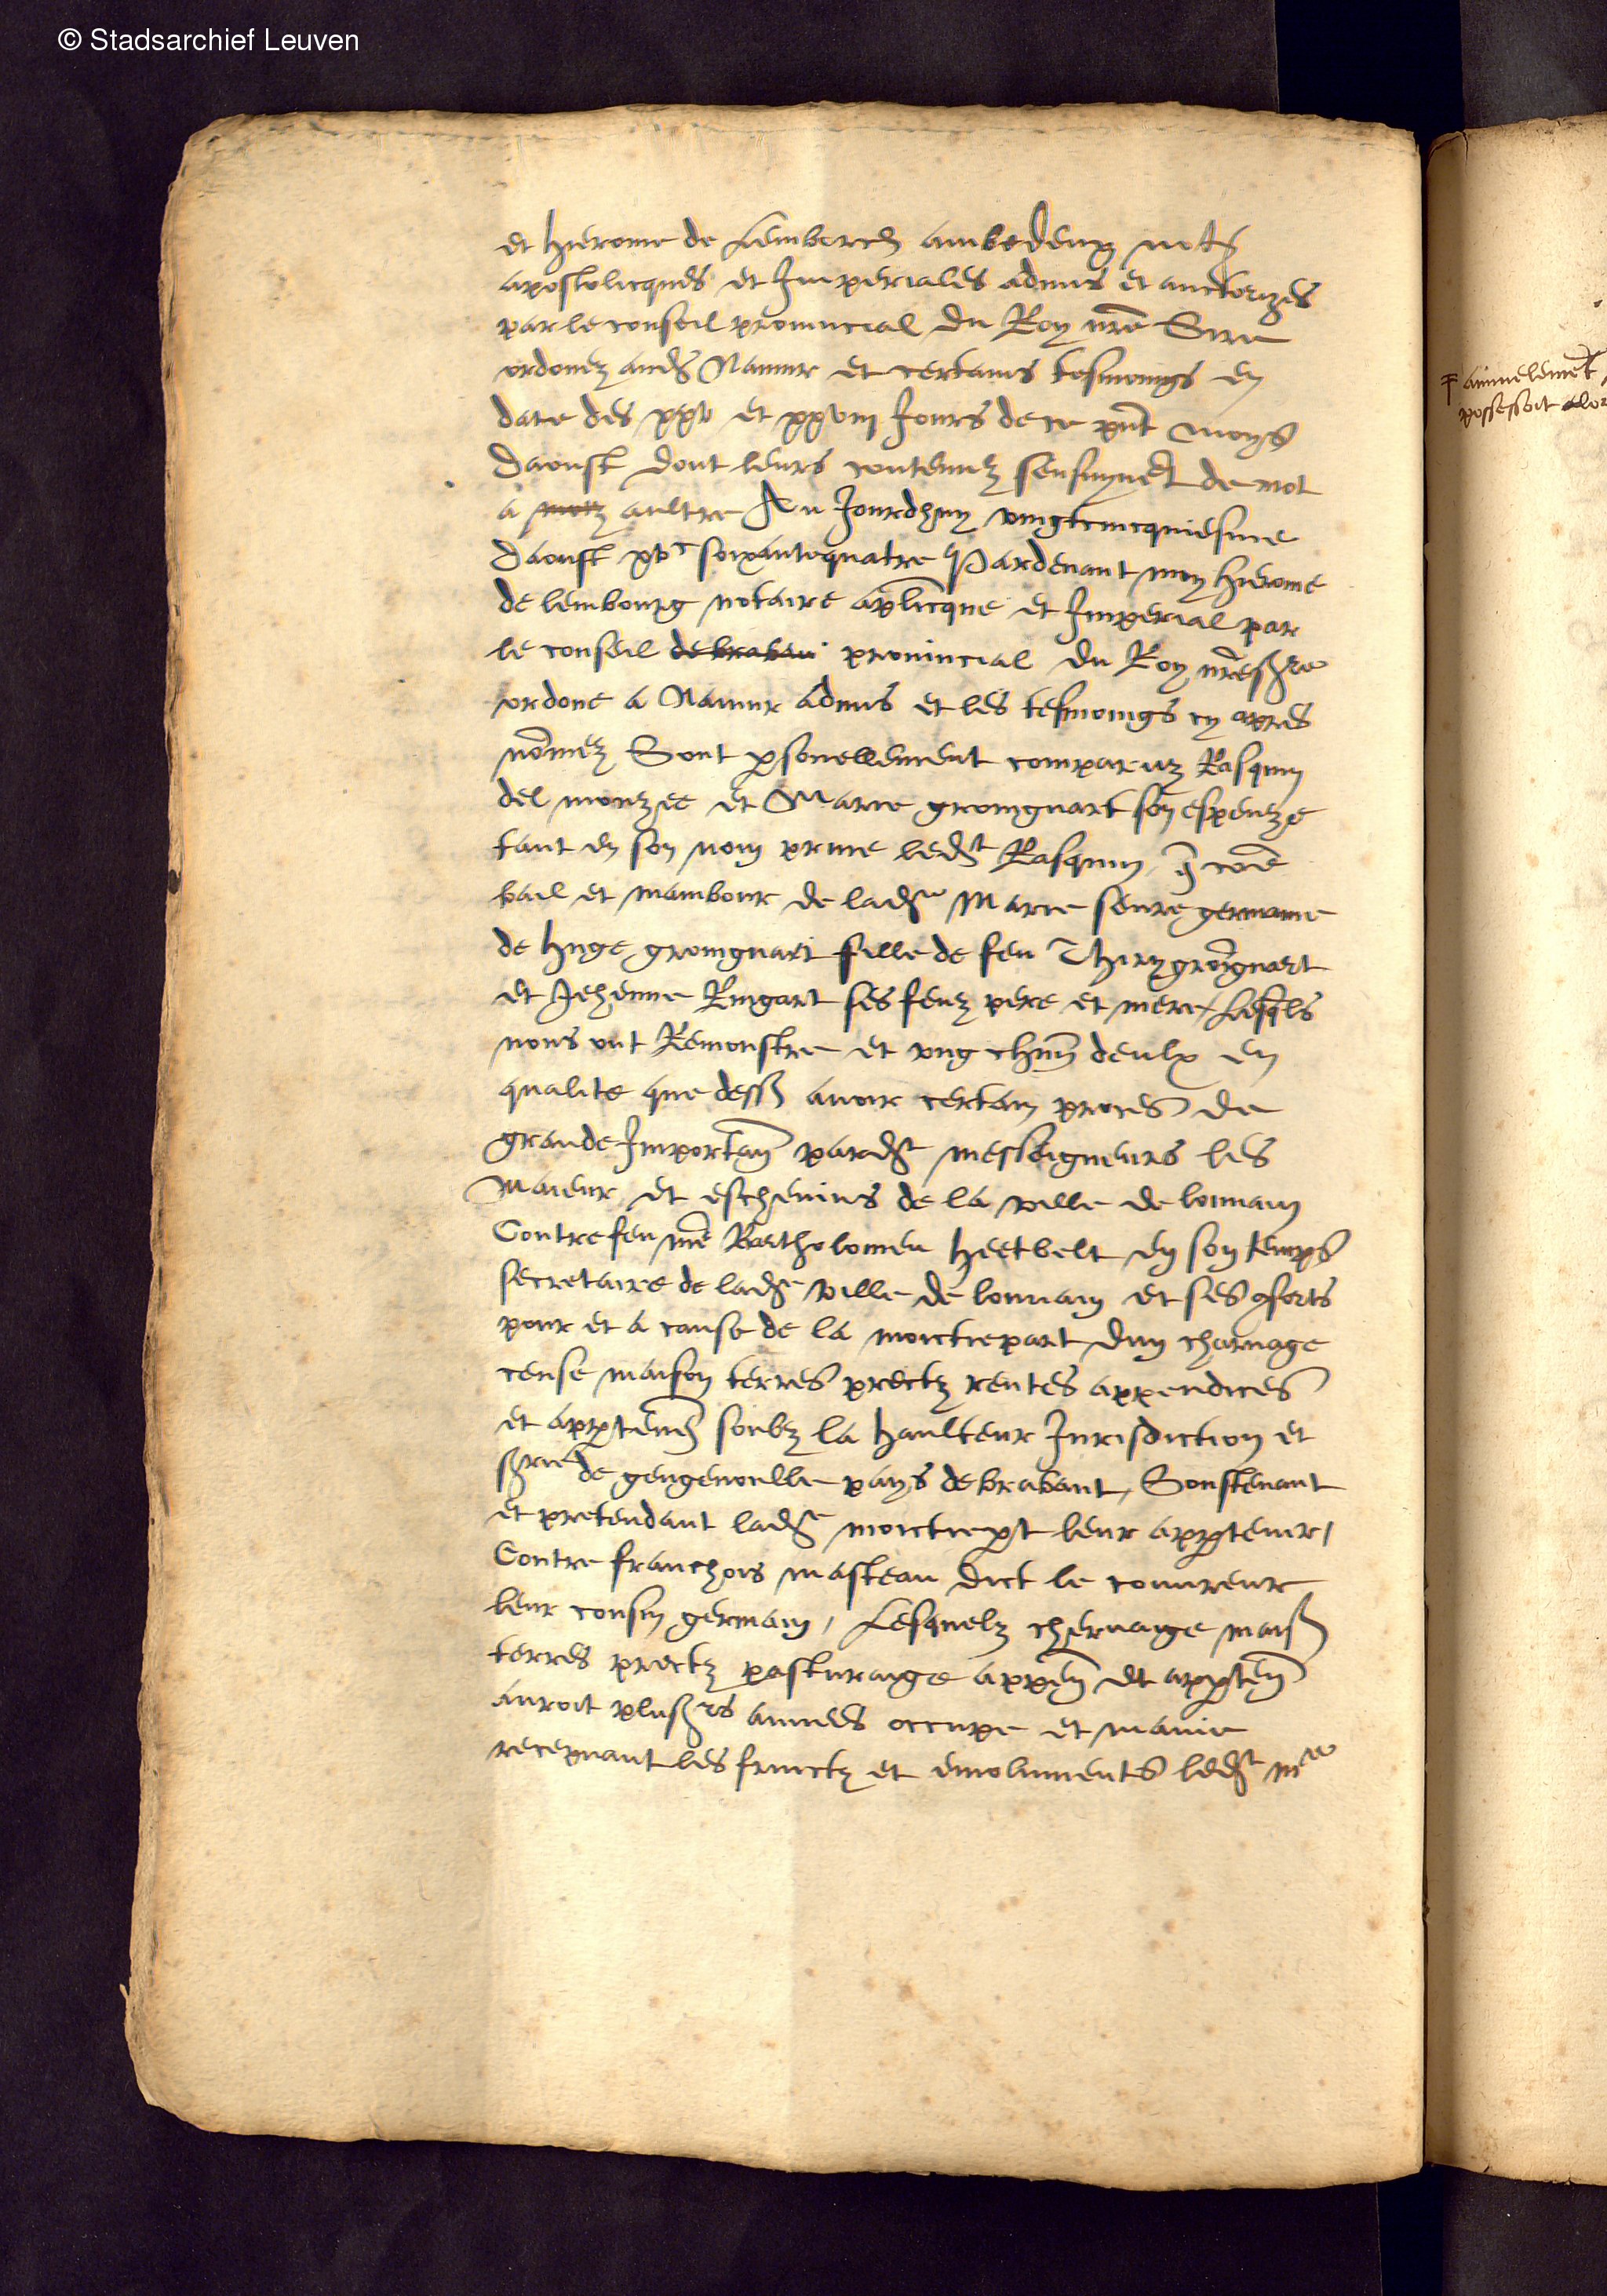 © Stadsarchief Leuven
et hierome de Lemborch ambedeux notz
apostolicques et Imperiales admis et auctorizes
par le conseil provincial du Roy nre Sire
ordonez audt Namur et certains tesmoings en
date des xxv et xxviii Jours de ce pnt moys
Daoust dont leurs contenuz sensuyvent de mot
a motz aultre Au Jourdhuy vingtcincquiesme
Daoust xvc soixantequatre Pardevant moy hierome
de lembourg notaire aplicque et Imperial par
le conseil de braban provincial du Roy nre sre
ordone a Namur admis et les tesmoings cy apres
nomez Sont psonellement comparuz Rasquin
del monzee et Marie groingnart son espeuze
tant en son nom prive ledt Rasquin q come
bail et mambour de ladte Marie seure germaine
de huge groingnart fille de feu Thiry groingnart
et Jehenne Ringart ses feuz pere et mere / Lesqls
nous ont Remonstre et ung chun deulx en
qualite que dess avoir certain proces de
grande Importan pardt messeigneurs les
Maieur et eschevins de la ville de louvain
Contre feu me Bartholomeu heetvelt en son temps
secretaire de ladte ville de louvain et ses csorts
pour et a cause de la moictie part dun charuage
cense maison terres prectz rentes appendices
et apptenen soubz la haulteur Jurisdiction et
srie de gengenoulle pays de brabant, Soustenant
et pretendant ladte moictie pt leur apptenir /
Contre franchois masteau dict le couvreur
leur cousin germain, Lesquelz cheruaige mais
terres prectz pasturaige appen et appten
auroit plussrs annees occupe et manie
recepvant les fruictz et emolumentz ledt me
annuelemet
possessoit